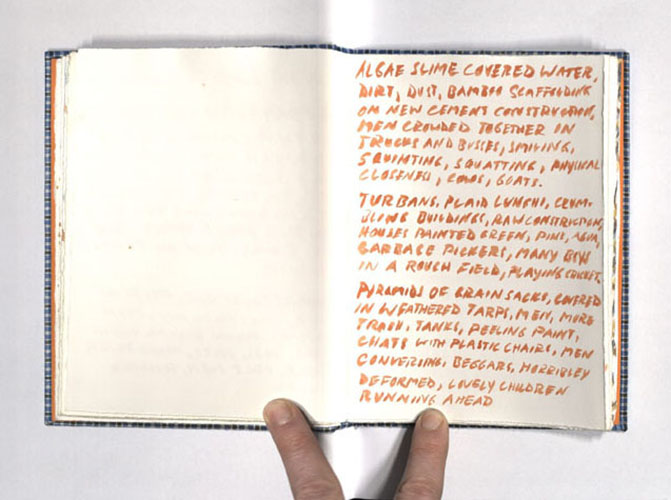 ALGAE SLIME COVERED WATER,
DIRT, DUST, BAMBOO SCAFFOLDING
ON NEW CEMENT CONSTRUCTION,
MEN CROWDED TOGETHER IN
TRUCKS AND BUSSES, SMILING,
SQUINTING, SQUATTING, PHYSICAL
CLOSENESS, COWS, GOATS.
TURBANS, PLAID LUNGHI, CRUM-
BLING BUILDINGS, RAW CONSTRUCTION,
HOUSES PAINTED GREEN, PINK, AQUA,
GARBAGE PICKERS, MANY BOYS
IN A ROUGH FIELD, PLAYING CRICKET.
PYRAMIDS OF GRAIN SACKS, COVERED
IN WEATHERED TARPS, MEN, MORE
TRASH, TANKS, PEELING PAINT,
CHATS WITH PLASTIC CHAIRS, MEN
CONVERSING, BEGGARS, HORRIBLEY
DEFORMED, LOVELY CHILDREN
RUNNING AHEAD